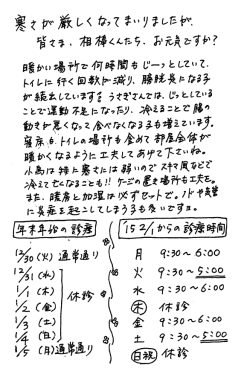 寒さが厳しくなってまいりましたが、
皆さま、相棒くんたち、お元気ですか?
暖かい場所で何時間もじーっとしていて、
トイレに行く回数が減り、膀胱炎になる子
が続出しています。うさぎさんでは、じっとしている
ことで運動不足になったり、冷えることで腸の
動きが悪くなって食べなくなる子も増えています。
寝床もトイレの場所も含めて部屋全体が
暖かくなるように工夫してあげて下さいね。
小鳥は特に寒さには弱いのでスキマ風などで
冷えて亡くなることも!! ケージの置き場所も工夫を。
また、暖房と加湿は必ずセットで。ノドや気管
に炎症を起こしてしまう子も多いですヨ。
年末年始の診療
12/30 (火) 通常通り
12/31 (水)
1/1 (木)
1/2 (金) 休診
1/3 (土)
1/4 (日)
1/5 (月) 通常通り
'15 2/1からの診療時間
月 9:30~6:00
火 9:30~5:00
水 9:30~6:00
木 休診
金 9:30~6:00
土 9:30~5:00
日祝 休診